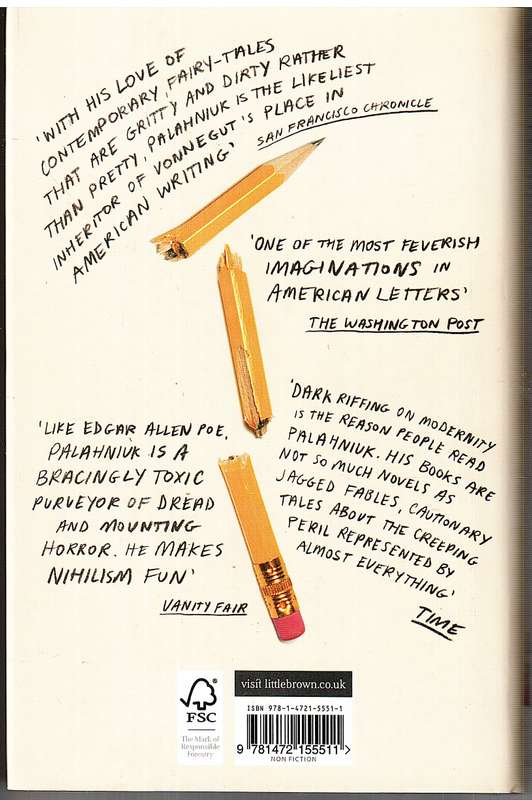 'WITH HIS LOVE OF
CONTEMPORARY FAIRY-TALES
THAT ARE GRITTY AND DIRTY RATHER
THAN PRETTY, PALAHNIUK IS THE LIKELIEST
INHERITOR OF VONNEGUT'S PLACE IN
AMERICAN WRITING'
SAN FRANCISCO CHRONICLE
'ONE OF THE MOST FEVERISH
IMAGINATIONS IN
AMERICAN LETTERS'
THE WASHINGTON POST
'LIKE EDGAR ALLEN POE,
PALAHNIUK IS A
BRACINGLY TOXIC
PURVEYOR OF DREAD
AND MOUNTING
HORROR. HE MAKES
NIHILISM FUN'
VANITY FAIR
'DARK RIFFING ON MODERNITY
IS THE REASON PEOPLE READ
PALAHNIUK. HIS BOOKS ARE
NOT SO MUCH NOVELS AS
JAGGED FABLES, CAUTIONARY
TALES ABOUT THE CREEPING
PERIL REPRESENTED BY
ALMOST EVERYTHING'
TIME
FSC
The Mark of
Responsible
Forestry
visit littlebrown.co.uk
ISBN 978-1-4721-5551-1
9 781472 155511 >
NON FICTION